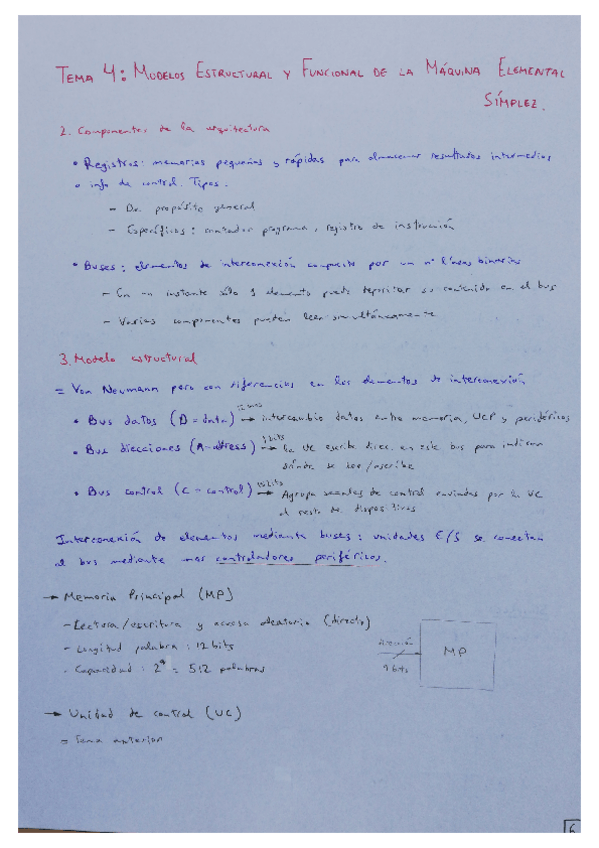 TEMA 4: MODELOS ESTRUCTURAL Y FUNCIONAL DE LA MÁQUINA ELEMENTAL
SÍMPLEZ.
2. Componentes de la arquitectura
• Registros: memorias pequeñas y rápidas para almacenar resultados intermedios
o info de control. Tipos:
- De propósito general
- Específicos: contador programa, registro de instrucción
• Buses: elementos de interconexión compuesto por un nº líneas binarias
- En un instante sólo 1 elemento puede depositar su contenido en el bus
- Varios componentes pueden leer simultáneamente
3. Modelo estructural
= Von Neumann pero con diferencias en los elementos de interconexión
• Bus datos (D = data) 12 bits → intercambio datos entre memoria, UCP y periféricos
• Bus direcciones (A = adress) 9 bits → la UC escribe direc. en este bus para indicar
dónde se lee/escribe
• Bus control (C = control) → Agrupa señales de control enviadas por la UC
al resto de dispositivos
Interconexión de elementos mediante buses: unidades E/S se conectan
al bus mediante unos controladores periféricos.
→ Memoria Principal (MP)
- Lectura/escritura y acceso aleatorio (directo)
- Longitud palabra: 12 bits
- Capacidad: 2⁹ = 512 palabras
dirección
9 bits
MP
→ Unidad de control (UC)
= Tema anterior
6